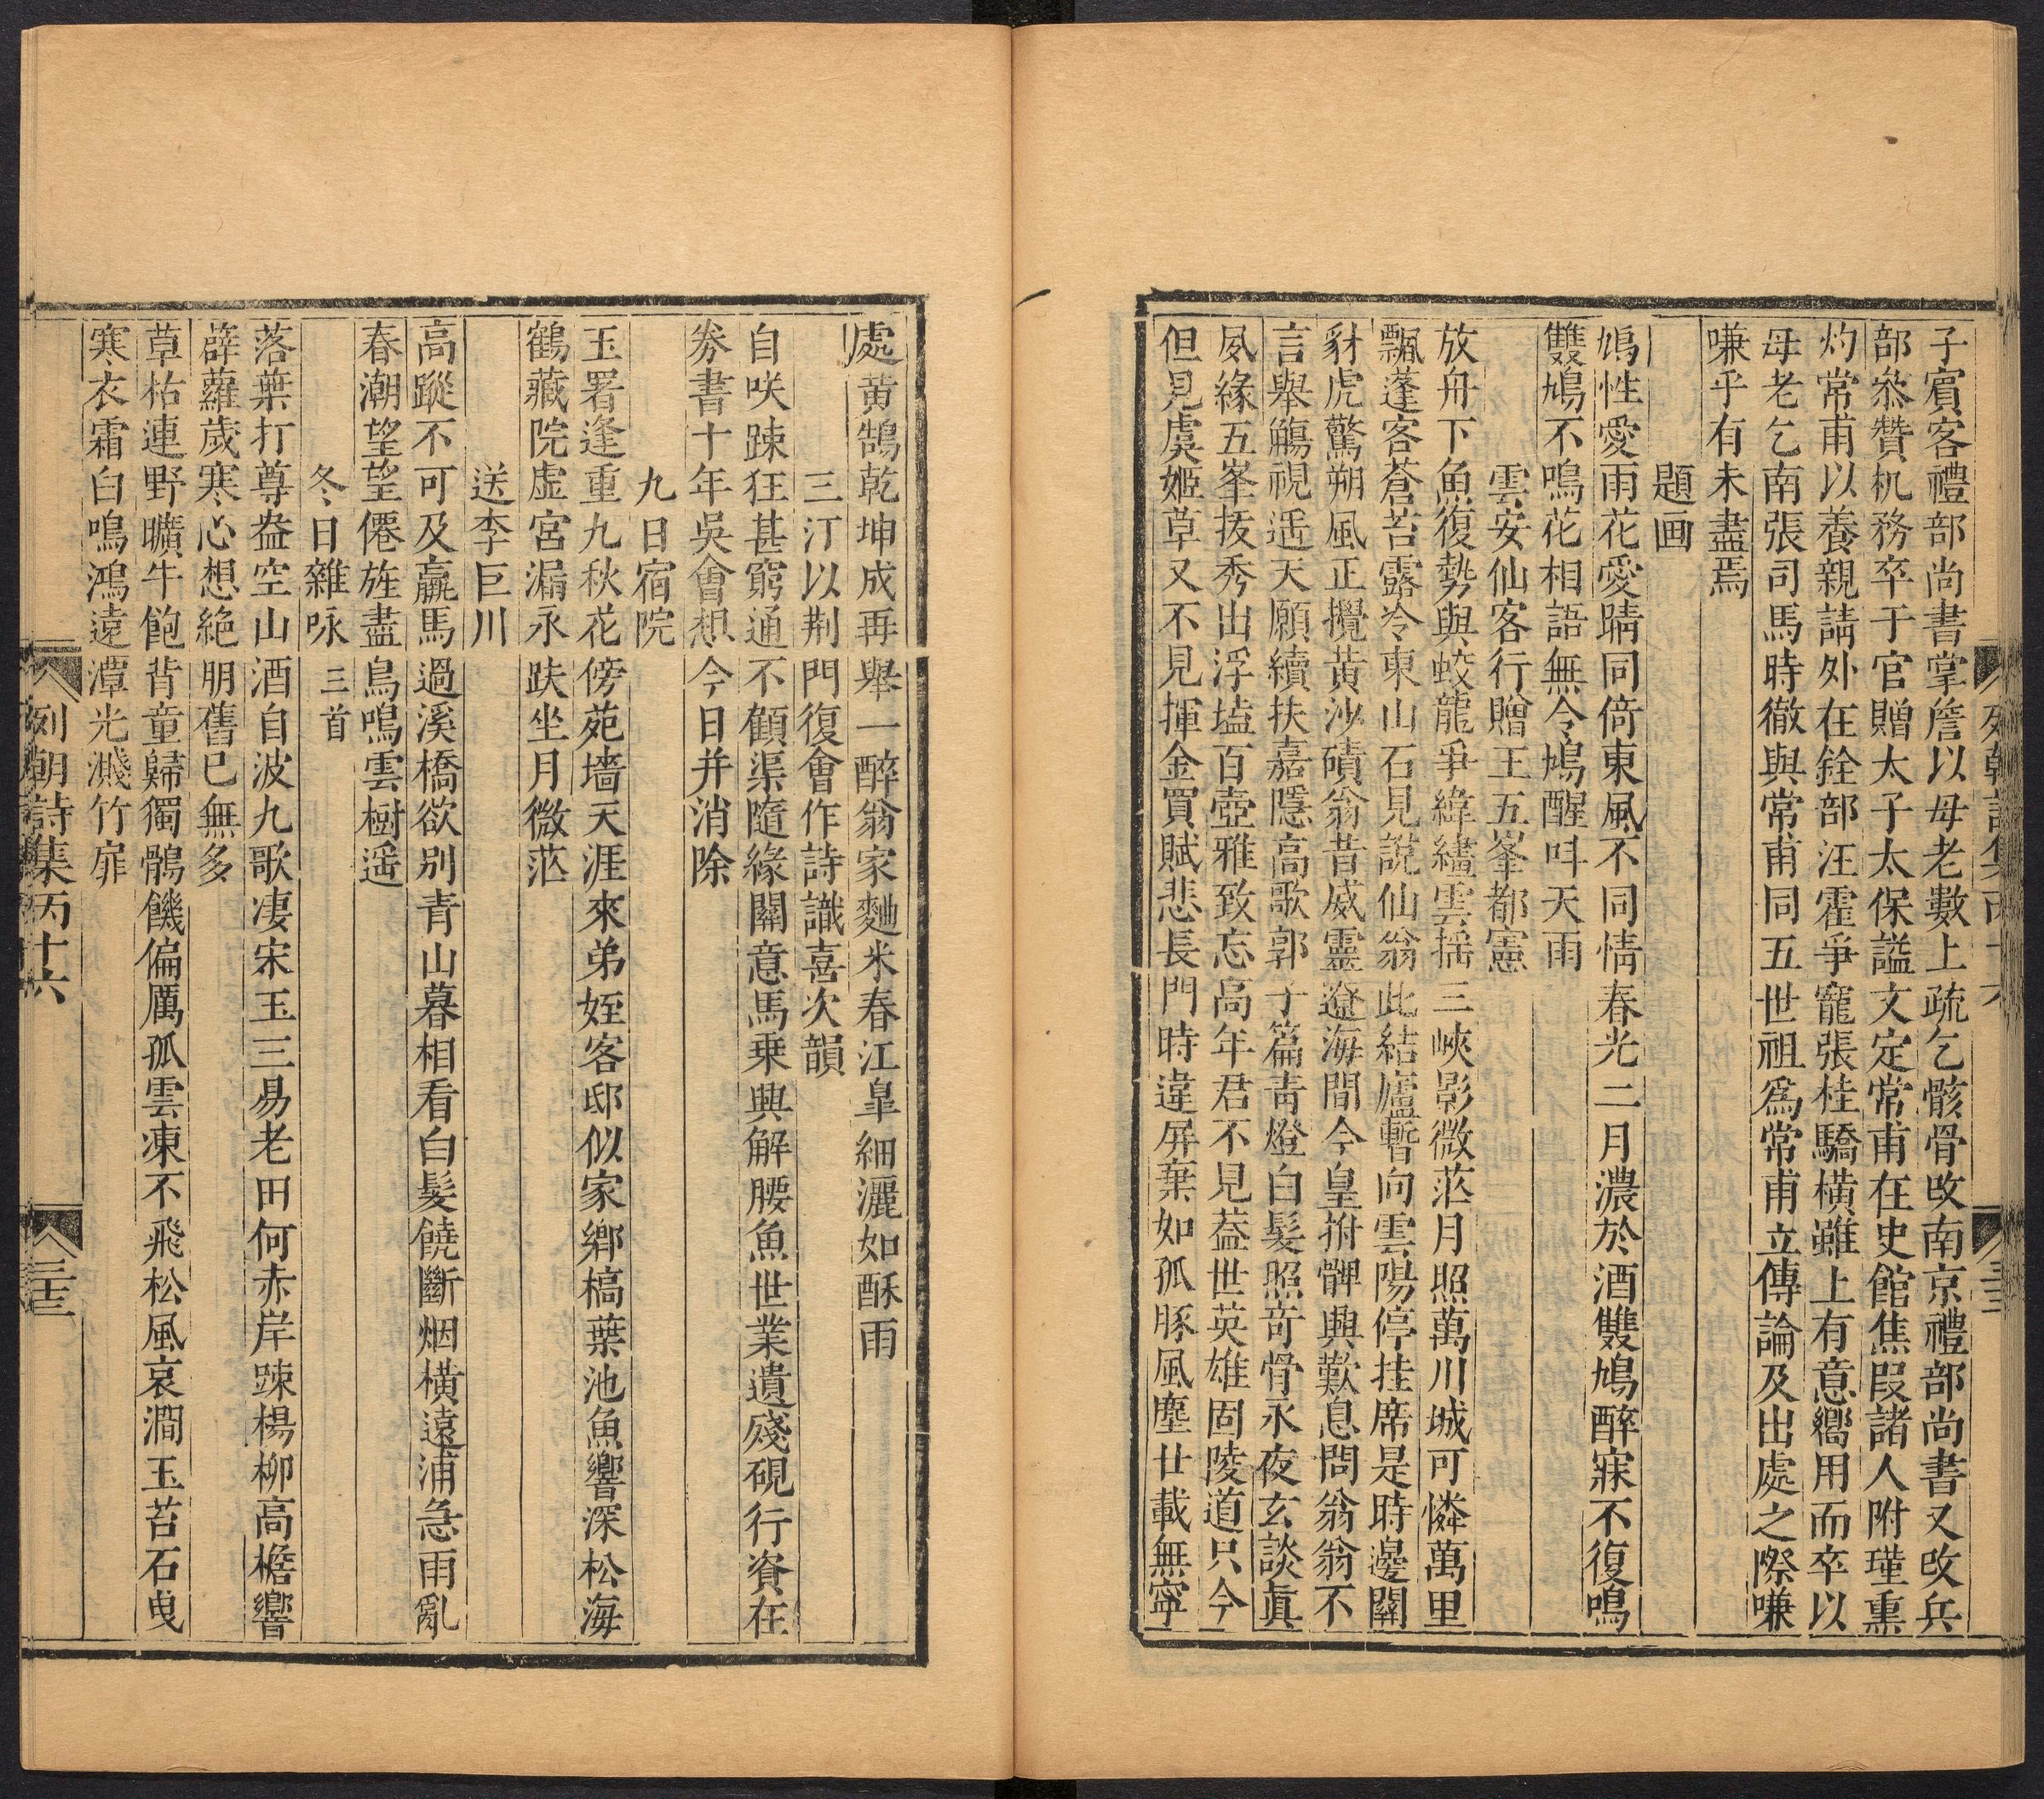 子賓客禮部尚書掌詹以母老數上疏乞骸骨改南京禮部尚書又改兵
部叅贊机務卒于官贈太子太保謚文定常甫在史館焦叚諸人附瑾熏
灼常甫以養親請外在銓部汪霍爭寵張桂驕橫雖上有意嚮用而卒以
母老乞南張司馬時徹與常甫同五世祖爲常甫立傳論及出處之際嗛
嗛乎有未盡焉
題画
鳩性愛雨花愛晴同倚東風不同情春光二月濃於酒雙鳩醉寐不復鳴
雙鳩不鳴花相語無令鳩醒呌天雨
雲安仙客行贈王五峯都憲
放舟下魚復勢與蛟龍爭緯繣雲揺三峽影微茫月照萬川城可憐萬里
飄蓬客蒼苔露冷東山石見說仙翁此結廬暫向雲陽停挂席是時邊關
豺虎驚朔風正攪黃沙磧翁昔威靈遼海間今皇拊髀興歎息問翁翁不
言舉觴視遥天願續扶嘉隱高歌郭子篇靑燈白髮照竒骨永夜玄談眞
夙緣五峯抜秀出浮壒百壺雅致忘高年君不見葢世英雄固陵道只今
但見虞姬草又不見揮金買賦悲長門時違屏棄如孤豚風塵廿載無寧
處黄鵠乾坤成再舉一醉翁家麯米春江臯細灑如酥雨
三汀以荆門復會作詩識喜次韻
自咲踈狂甚窮通不顧渠隨緣關意馬乗興解腰魚世業遺殘硯行資在
券書十年吳會想今日并消除
九日宿院
玉署逢重九秋花傍苑墻天涯來弟姪客邸似家鄉槁葉池魚響深松海
鶴藏院虚宮漏永趺坐月微茫
送李巨川
高蹤不可及羸馬過溪橋欲别青山暮相看白髮饒斷烟橫遠浦急雨亂
春潮望望僊旌盡鳥鳴雲樹遥
冬日雜咏 三首
落葉打尊盎空山酒自波九歌凄宋玉三易老田何赤岸踈楊柳高檐響
薜蘿歲寒心想絶朋舊已無多
草枯連野曠牛飽背童歸獨鶻饑偏厲孤雲凍不飛松風哀澗玉苔石曵
寒衣霜白鳴鴻遠潭光濺竹扉
列朝詩集丙十六
三十三